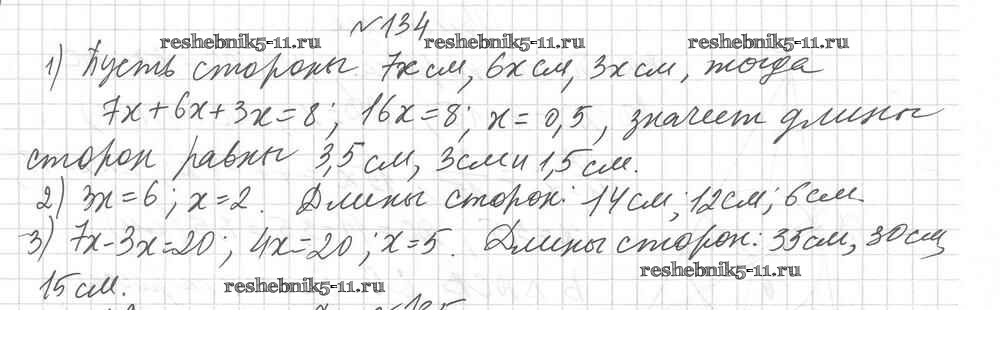 №134
reshebnik5-11.ru reshebnik5-11.ru reshebnik5-11.ru
1) Пусть стороны 7x см, 6x см, 3x см, тогда
7x+6x+3x=8; 16x=8; x=0,5, значит длины
сторон равны 3,5 см, 3 см и 1,5 см.
2) 3x=6; x=2. Длины сторон: 14 см; 12 см; 6 см.
3) 7x-3x=20; 4x=20; x=5. Длины сторон: 35 см, 30 см,
reshebnik5-11.ru
15 см.
reshebnik5-11.ru